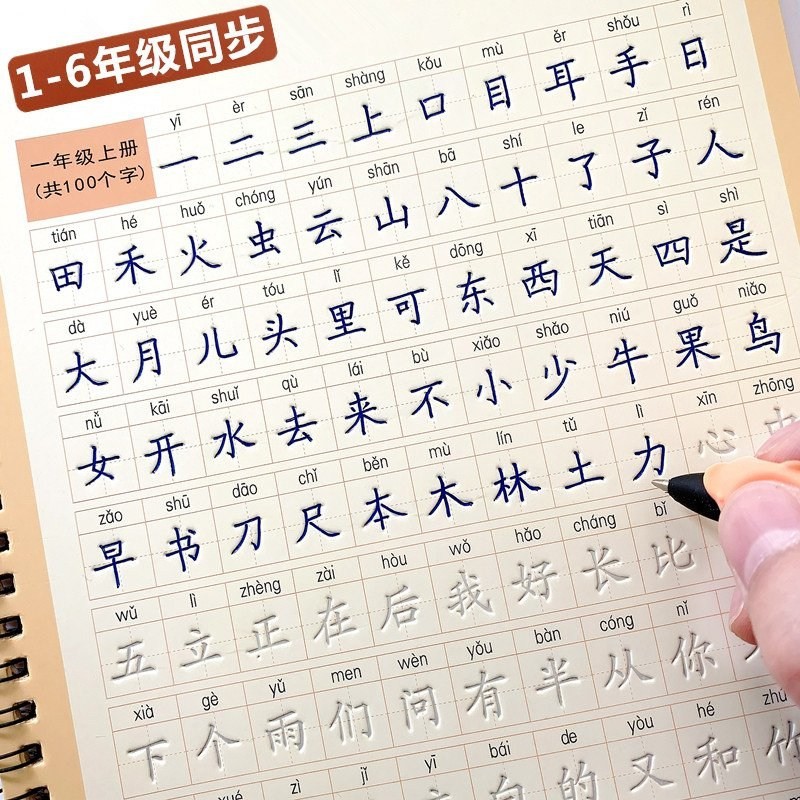 1-6年级同步
yī èr sān shàng kǒu mù ěr shǒu rì
一年级上册
(共100个字)
一 二 三 上 口 目 耳 手 日
tián hé huǒ chóng yún shān bā shí le zǐ rén
田 禾 火 虫 云 山 八 十 了 子 人
dà yuè ér tóu lǐ kě dōng xī tiān sì shì
大 月 儿 头 里 可 东 西 天 四 是
nǚ kāi shuǐ qù lái bù xiǎo shǎo niú guǒ niǎo
女 开 水 去 来 不 小 少 牛 果 鸟
zǎo shū dāo chǐ běn mù lín tǔ lì xīn zhōng
早 书 刀 尺 本 木 林 土 力 心 中
wǔ lì zhèng zài hòu wǒ hǎo cháng bǐ
五 立 正 在 后 我 好 长 比
xià gè yǔ men wèn yǒu bàn cóng nǐ
下 个 雨 们 问 有 半 从 你
xué zì jǐ yī bái de yòu hé zhú
白 的 又 和 竹